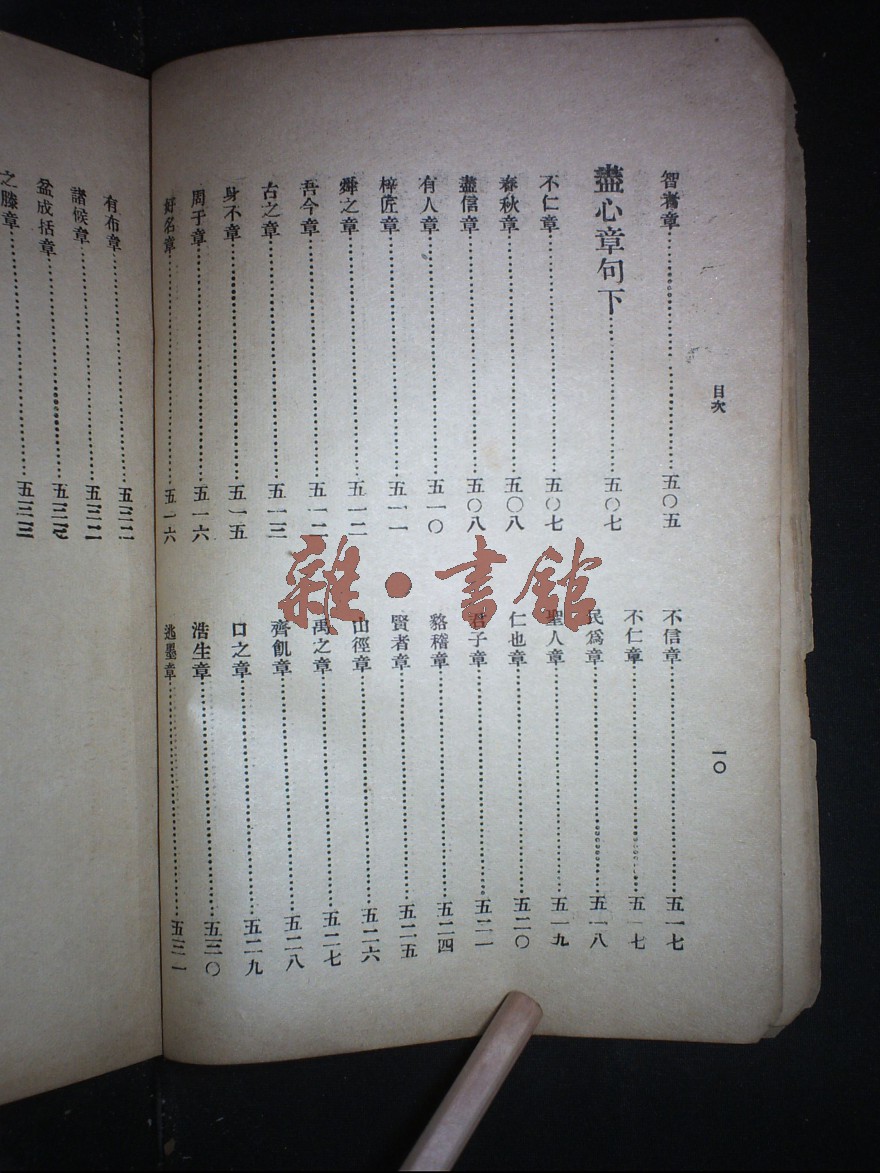 目次
一〇
智者章 五〇五
盡心章句下 五〇七
不仁章 五〇七
春秋章 五〇八
盡信章 五〇八
有人章 五一〇
梓匠章 五一一
舜之章 五一二
吾今章 五一二
古之章 五一三
身不章 五一五
周于章 五一六
好名章 五一六
不信章 五一七
不仁章 五一七
民為章 五一八
聖人章 五一九
仁也章 五二〇
君子章 五二一
貉稽章 五二四
賢者章 五二五
山徑章 五二六
禹之章 五二七
齊飢章 五二八
口之章 五二九
浩生章 五三〇
逃墨章 五三一
有布章 五三二
諸候章 五三二
盆成括章
之滕章
雜·書館